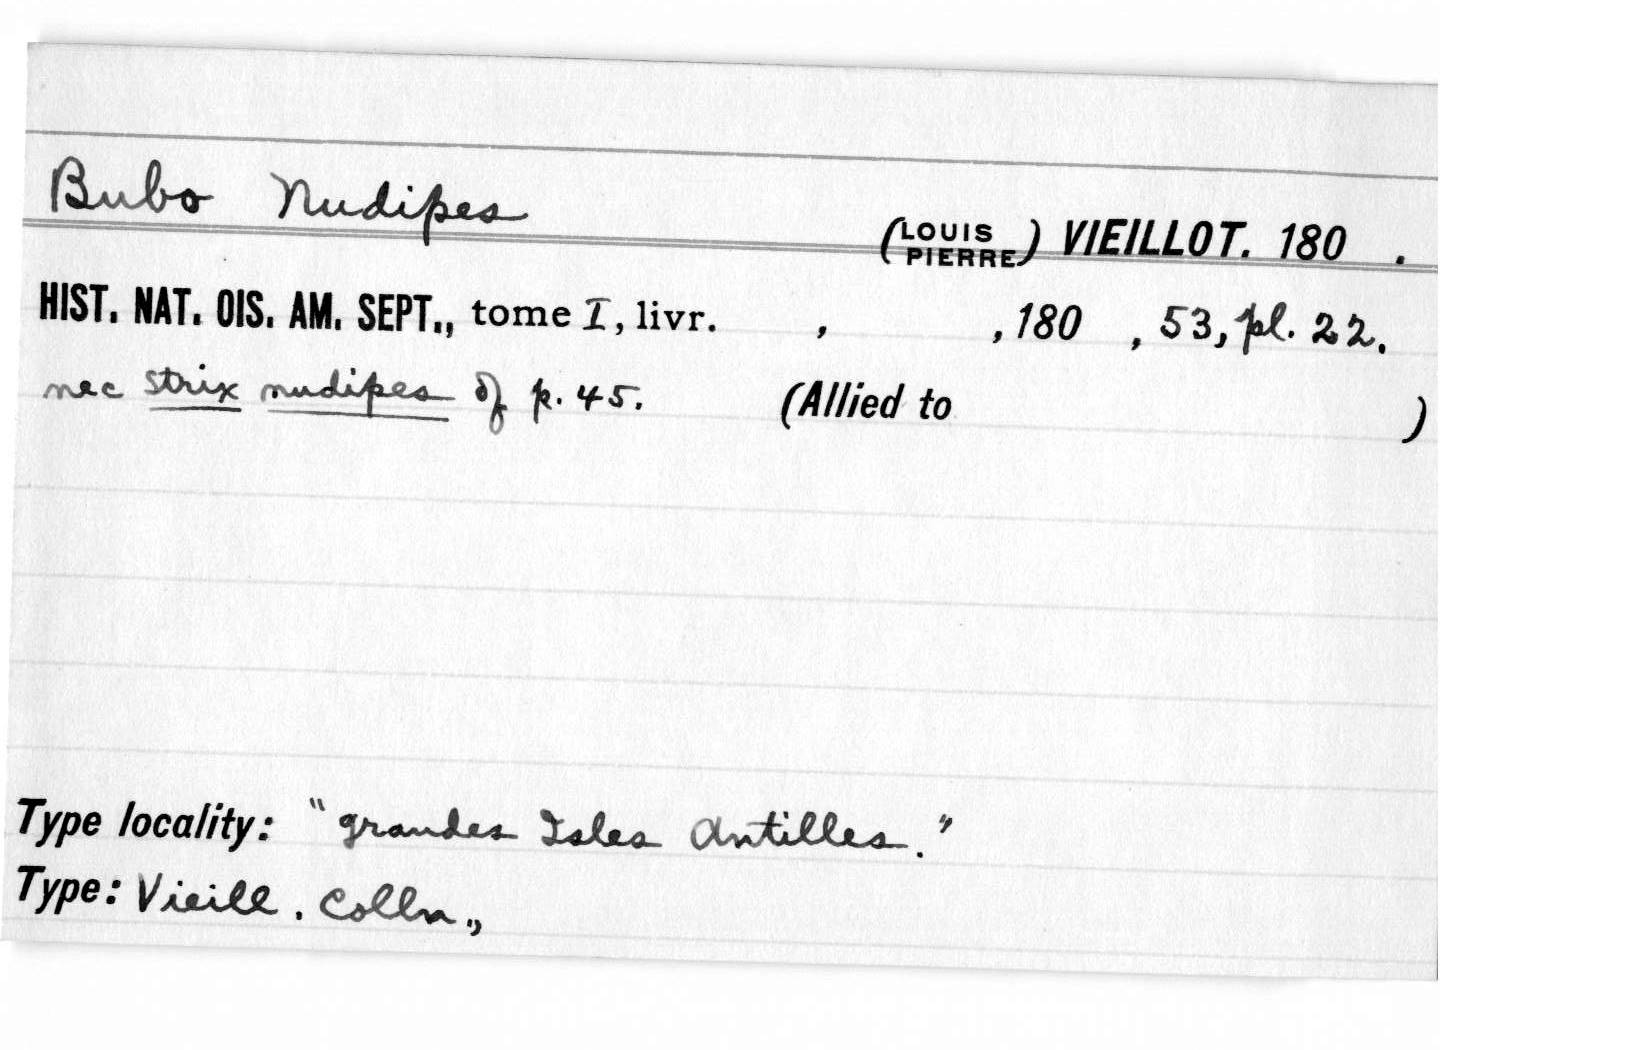 Bubo Nudipes (LOUIS PIERRE) VIEILLOT. 180 .
HIST. NAT. OIS. AM. SEPT., tome I, livr. , , 180 , 53, pl. 22.
nec Strix nudipes of p. 45. (Allied to )
Type locality: "grandes Isles Antilles."
Type: Vieill. Colln.,